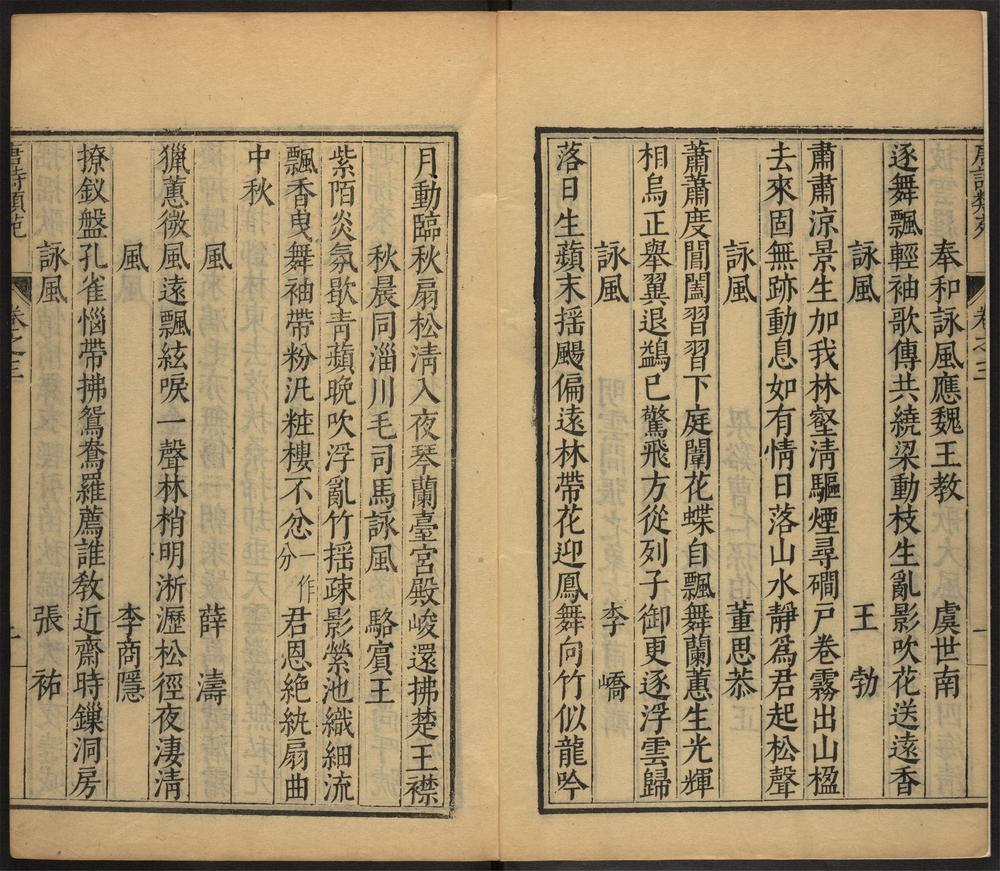 唐詩類苑 卷之三 一
奉和詠風應魏王教 虞世南
逐舞飄輕袖歌傳共繞梁動枝生亂影吹花送遠香
詠風 王勃
肅肅涼景生加我林壑淸驅煙尋磵戸卷霧出山楹
去來固無跡動息如有情日落山水靜爲君起松聲
詠風 董思恭
蕭蕭度閶闔習習下庭闈花蝶自飄舞蘭蕙生光輝
相烏正舉翼退鷁已驚飛方從列子御更逐浮雲歸
詠風 李嶠
落日生蘋末揺颺偏遠林帶花迎鳳舞向竹似龍吟
月動臨秋扇松淸入夜琴蘭臺宮殿峻還拂楚王襟
秋晨同淄川毛司馬詠風 駱賓王
紫陌炎氛歇青蘋晩吹浮亂竹揺疎影縈池織細流
飄香曳舞袖帶粉汎粧樓不忿一作分君恩絶紈扇曲
中秋
風 薛濤
獵蕙微風遠飄絃唳一聲林梢明淅瀝松徑夜凄淸
風 李商隱
撩釵盤孔雀惱帶拂鴛鴦羅薦誰教近齋時鏁洞房
詠風 張祐
唐詩類苑 卷之三